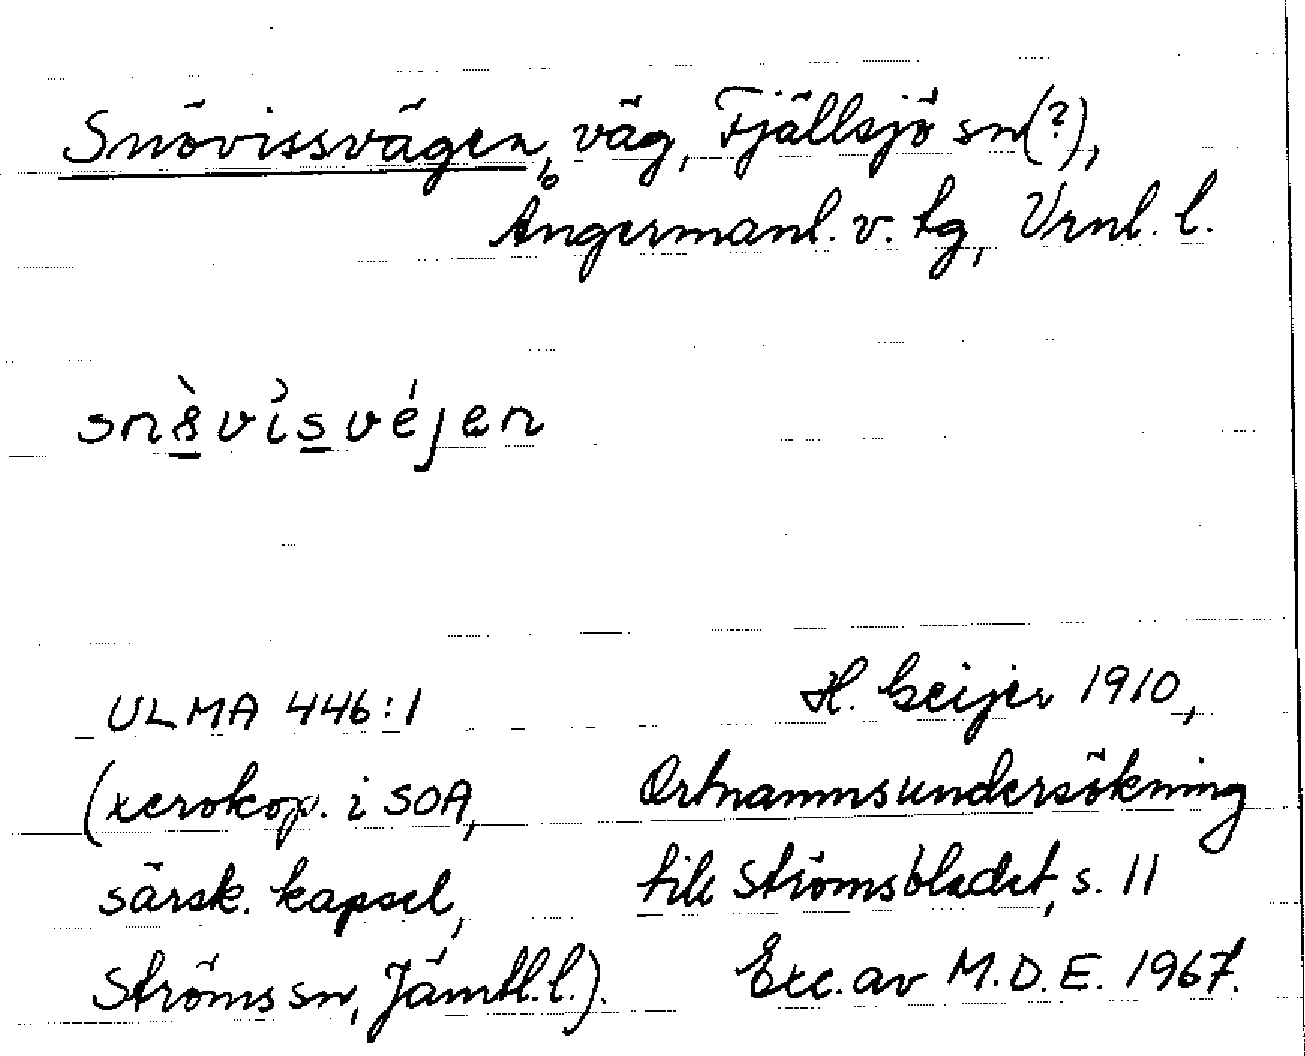 Snövissvägen, väg, Fjällsjö sn(?),
Ångermanl. v. tg, Vrnl. l.
ULMA 446:1
(xerokop. i SOA,
särsk. kapsel,
Ströms sn, Jämtl. l.).
H. Geijer 1910,
Ortnamnsundersökning
till Strömsbladet, s. 11
Exc. av M.D.E. 1967.